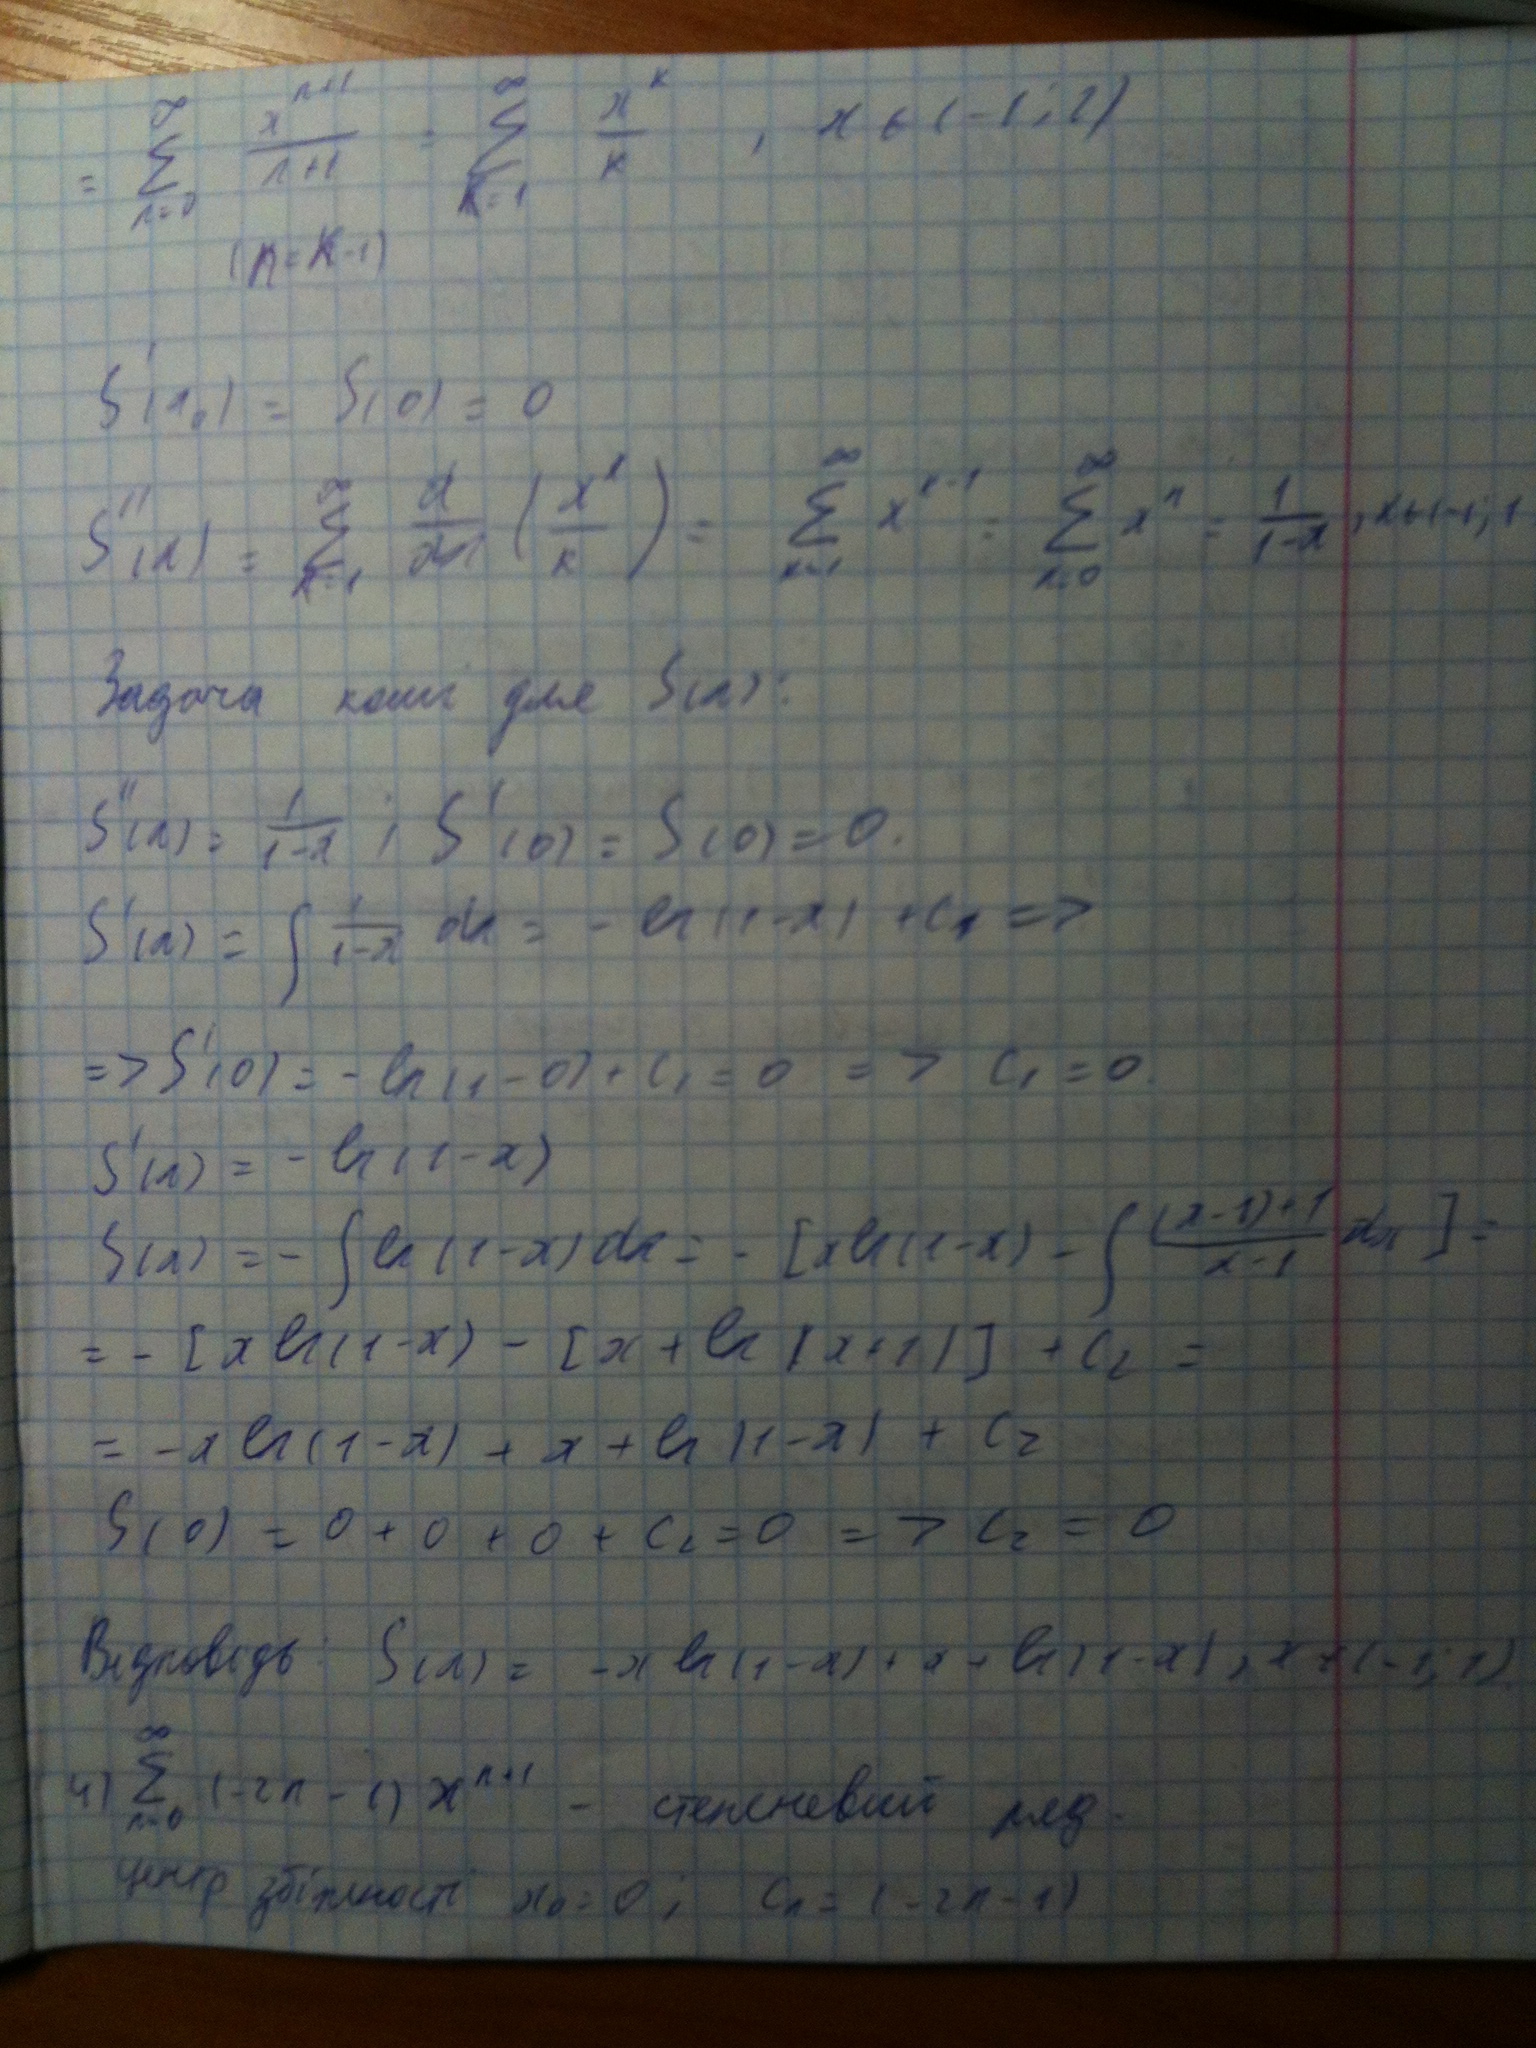 = ∑_{n=0}^{∞} x^{n+1}/(n+1) = ∑_{k=1}^{∞} x^k/k , x ∈ (-1; 1)
(n = k-1)
S'(x₀) = S(0) = 0
S''(x) = ∑_{k=1}^{∞} d/dx (x^k/k) = ∑_{k=1}^{∞} x^{k-1} = ∑_{n=0}^{∞} x^n = 1/(1-x), x ∈ (-1; 1
Задача коші для S(x):
S''(x) = 1/(1-x) ; S'(0) = S(0) = 0.
S'(x) = ∫ 1/(1-x) dx = - ln(1-x) + C₁ =>
=> S'(0) = - ln(1-0) + C₁ = 0 => C₁ = 0.
S'(x) = - ln(1-x)
S(x) = - ∫ ln(1-x) dx = - [x ln(1-x) - ∫ ((x-1)+1)/(x-1) dx] =
= - [x ln(1-x) - [x + ln|x+1|] + C₂ =
= -x ln(1-x) + x + ln|1-x| + C₂
S(0) = 0 + 0 + 0 + C₂ = 0 => C₂ = 0
Відповідь: S(x) = -x ln(1-x) + x + ln|1-x|, x ∈ (-1; 1)
4) ∑_{n=0}^{∞} (-2n - 1) x^{n+1} - степеневий ряд.
центр збіжності x₀ = 0; Cₙ = (-2n-1)